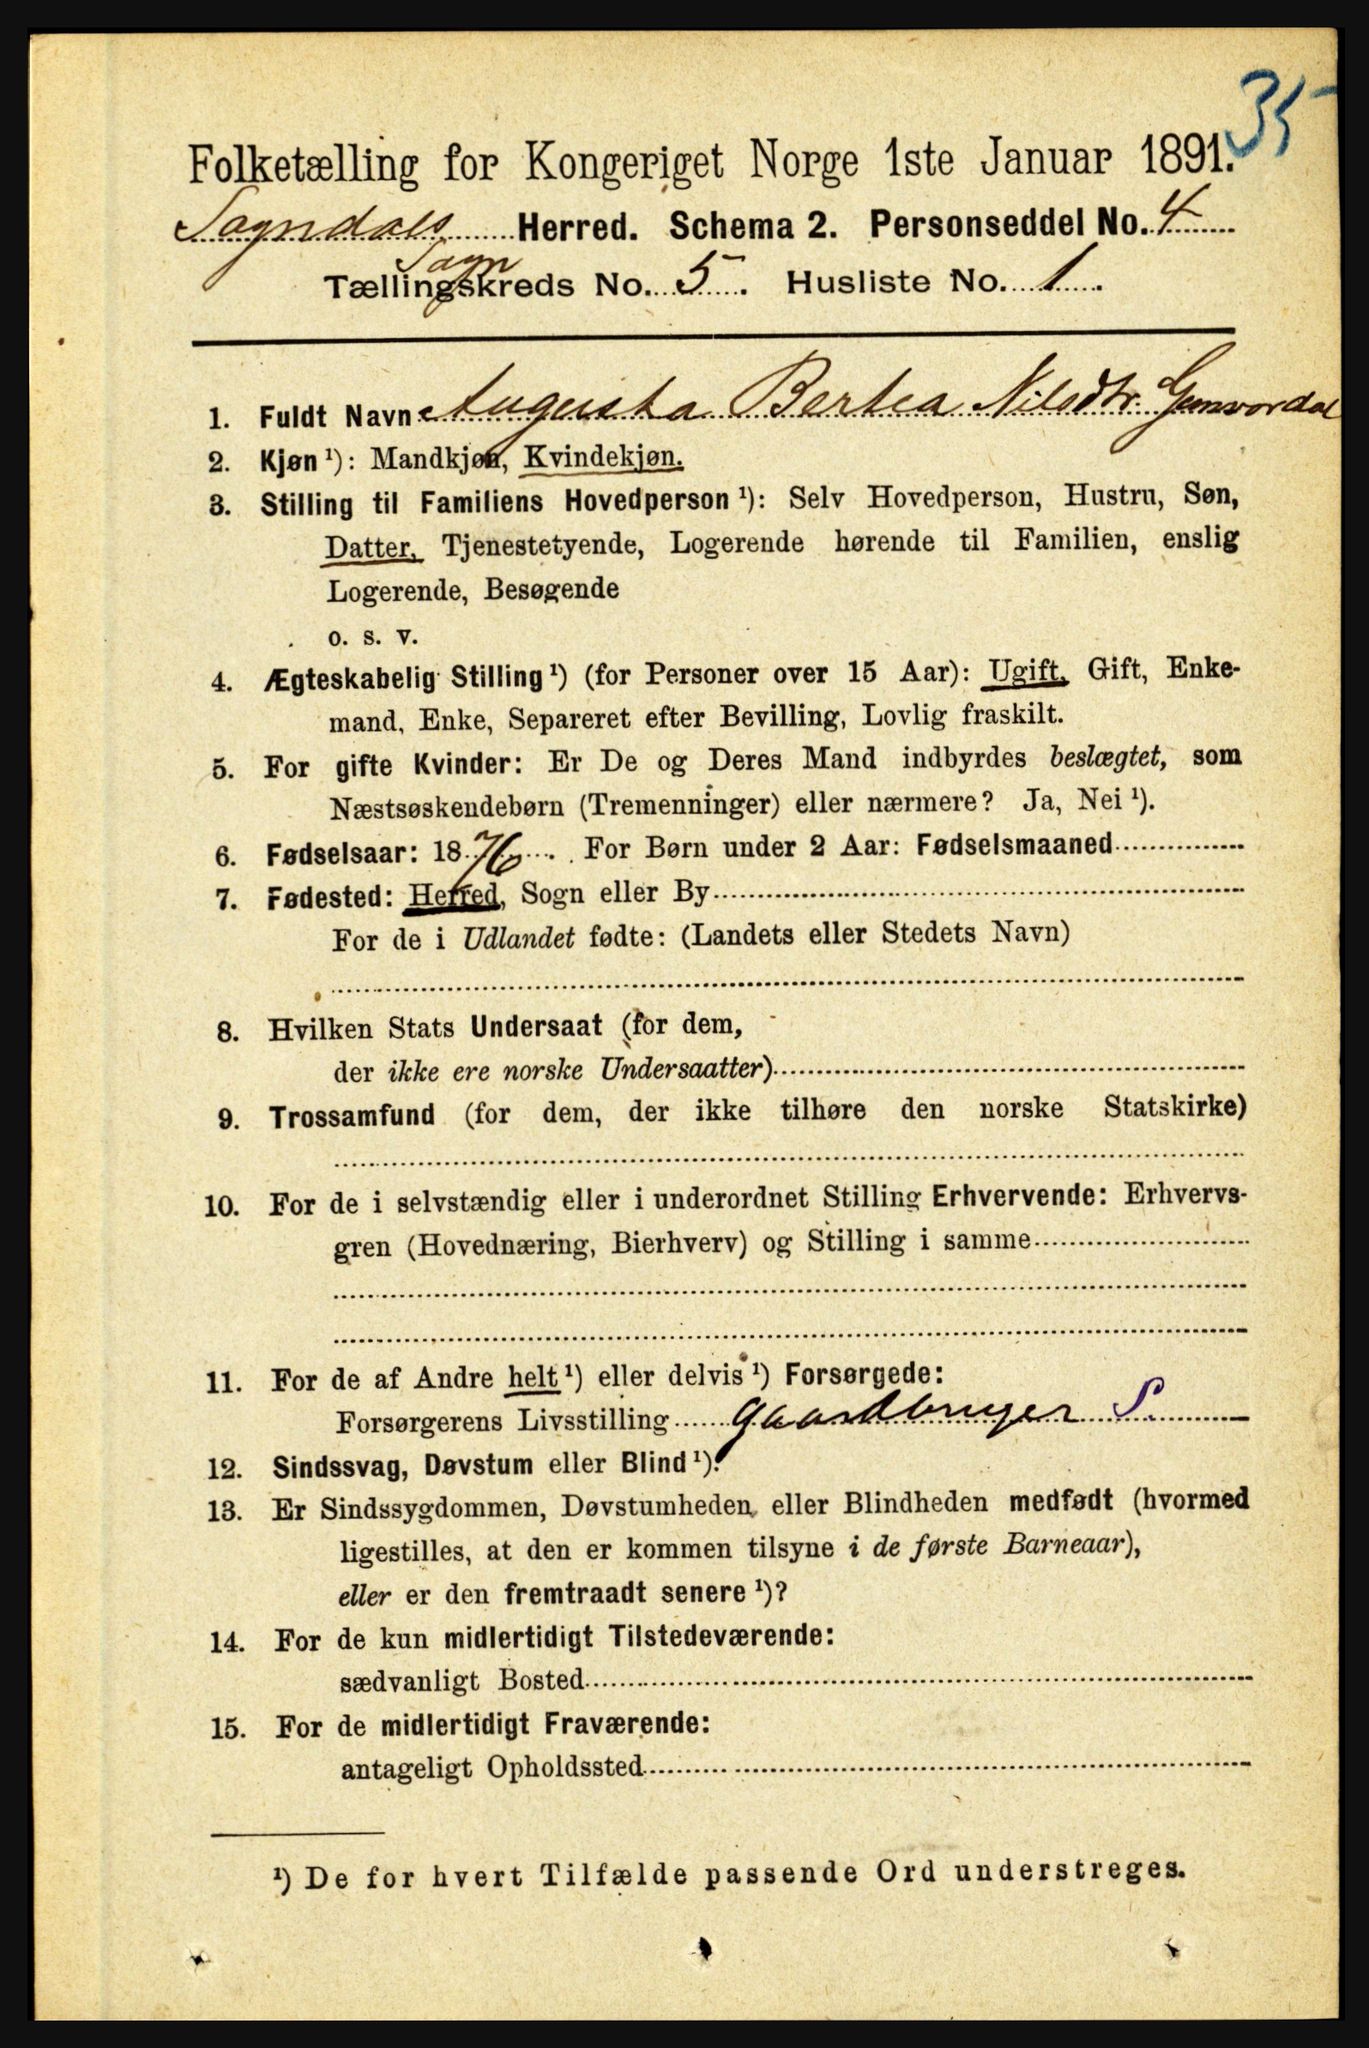 35
Folketælling for Kongeriget Norge 1ste Januar 1891.
Sogndals Herred. Schema 2. Personseddel No. 4
Sogn
Tællingskreds No. 5. Husliste No. 1.
1. Fuldt Navn Augusta Bertea Nilsdtr. Gunvordal
2. Kjøn ¹): Mandkjøn, Kvindekjøn.
3. Stilling til Familiens Hovedperson ¹): Selv Hovedperson, Hustru, Søn,
Datter, Tjenestetyende, Logerende hørende til Familien, enslig
Logerende, Besøgende
o. s. v.
4. Ægteskabelig Stilling ¹) (for Personer over 15 Aar): Ugift, Gift, Enke-
mand, Enke, Separeret efter Bevilling, Lovlig fraskilt.
5. For gifte Kvinder: Er De og Deres Mand indbyrdes beslægtet, som
Næstsøskendebørn (Tremenninger) eller nærmere? Ja, Nei ¹).
6. Fødselsaar: 1876. For Børn under 2 Aar: Fødselsmaaned
7. Fødested: Herred, Sogn eller By
For de i Udlandet fødte: (Landets eller Stedets Navn)
8. Hvilken Stats Undersaat (for dem,
der ikke ere norske Undersaatter)
9. Trossamfund (for dem, der ikke tilhøre den norske Statskirke)
10. For de i selvstændig eller i underordnet Stilling Erhvervende: Erhvervs-
gren (Hovednæring, Bierhverv) og Stilling i samme
11. For de af Andre helt ¹) eller delvis ¹) Forsørgede:
Forsørgerens Livsstilling Gaardbruger S.
12. Sindssvag, Døvstum eller Blind ¹).
13. Er Sindssygdommen, Døvstumheden eller Blindheden medfødt (hvormed
ligestilles, at den er kommen tilsyne i de første Barneaar),
eller er den fremtraadt senere ¹)?
14. For de kun midlertidigt Tilstedeværende:
sædvanligt Bosted
15. For de midlertidigt Fraværende:
antageligt Opholdssted
¹) De for hvert Tilfælde passende Ord understreges.